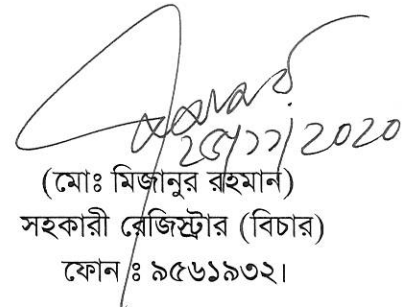 ২৫/১১/2020
(মোঃ মিজানুর রহমান)
সহকারী রেজিস্ট্রার (বিচার)
ফোন ঃ ৯৫৬১৯৩২।